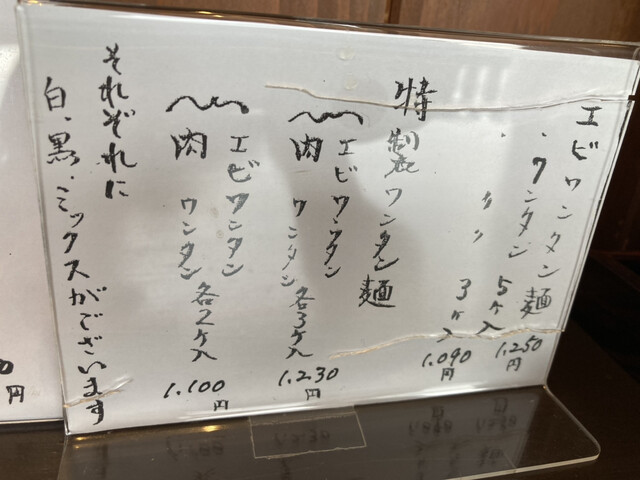 エビワンタン麺
・ワンタン 5ヶ入 1.250円
・ 〃 〃 3ヶ入 1.090円
特製ワンタン麺
エビワンタン
肉ワンタン 各3ヶ入 1.230円
エビワンタン
肉ワンタン 各2ヶ入 1.100円
それぞれに
白、黒、ミックスがございます
0円